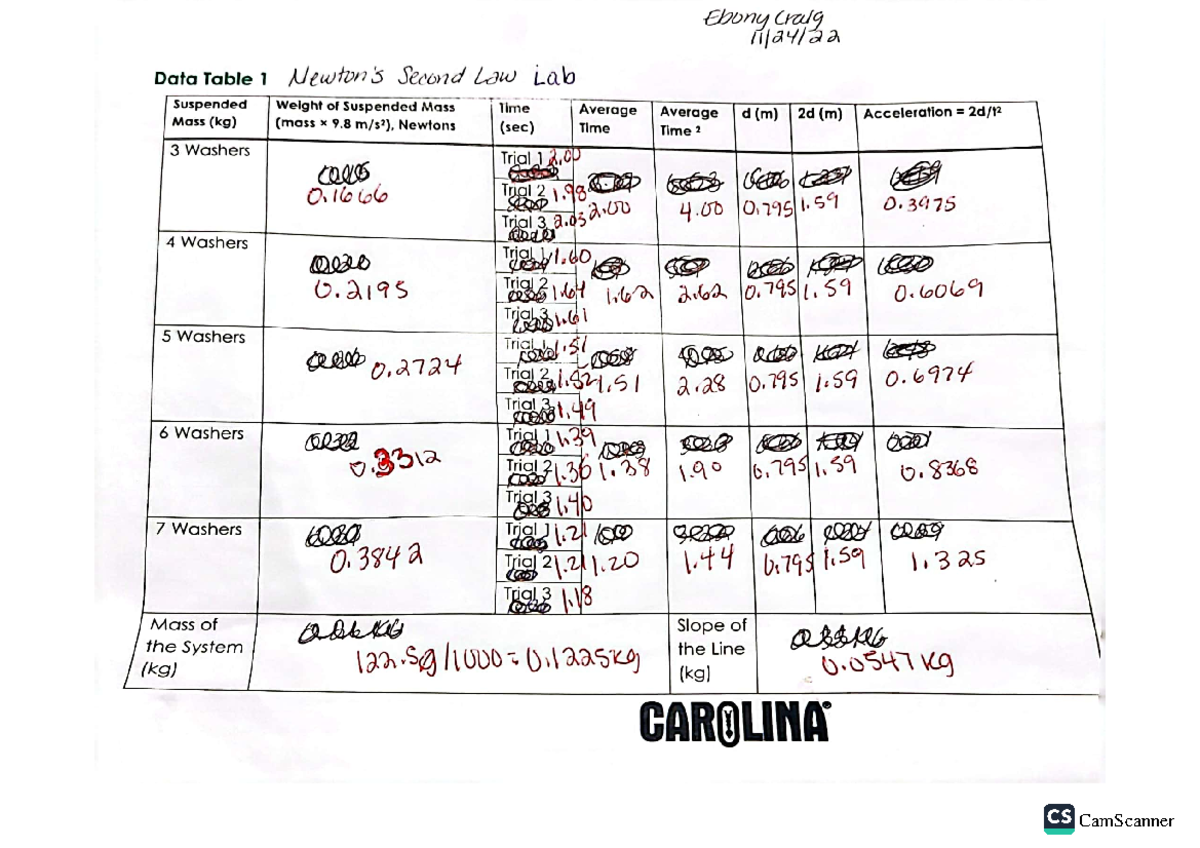 Ebony Craig
11/24/22
Data Table 1 Newton's Second Law Lab
Suspended Mass (kg) Weight of Suspended Mass (mass × 9.8 m/s²), Newtons Time (sec) Average Time Average Time ² d (m) 2d (m) Acceleration = 2d/t²
3 Washers 0.1666 Trial 1 2.00
Trial 2 1.98 2.00 4.00 0.795 1.59 0.3975
Trial 3 2.03
4 Washers 0.2195 Trial 1 1.60
Trial 2 1.64 1.62 2.62 0.795 1.59 0.6069
Trial 3 1.61
5 Washers 0.2724 Trial 1 1.51
Trial 2 1.52 1.51 2.28 0.795 1.59 0.6974
Trial 3 1.49
6 Washers 0.3312 Trial 1 1.39
Trial 2 1.36 1.38 1.90 0.795 1.59 0.8368
Trial 3 1.40
7 Washers 0.3842 Trial 1 1.21
Trial 2 1.21 1.20 1.44 0.795 1.59 1.325
Trial 3 1.18
Mass of the System (kg) 122.5g/1000 = 0.1225kg Slope of the Line (kg) 0.0547 kg
CAROLINA®
CS CamScanner